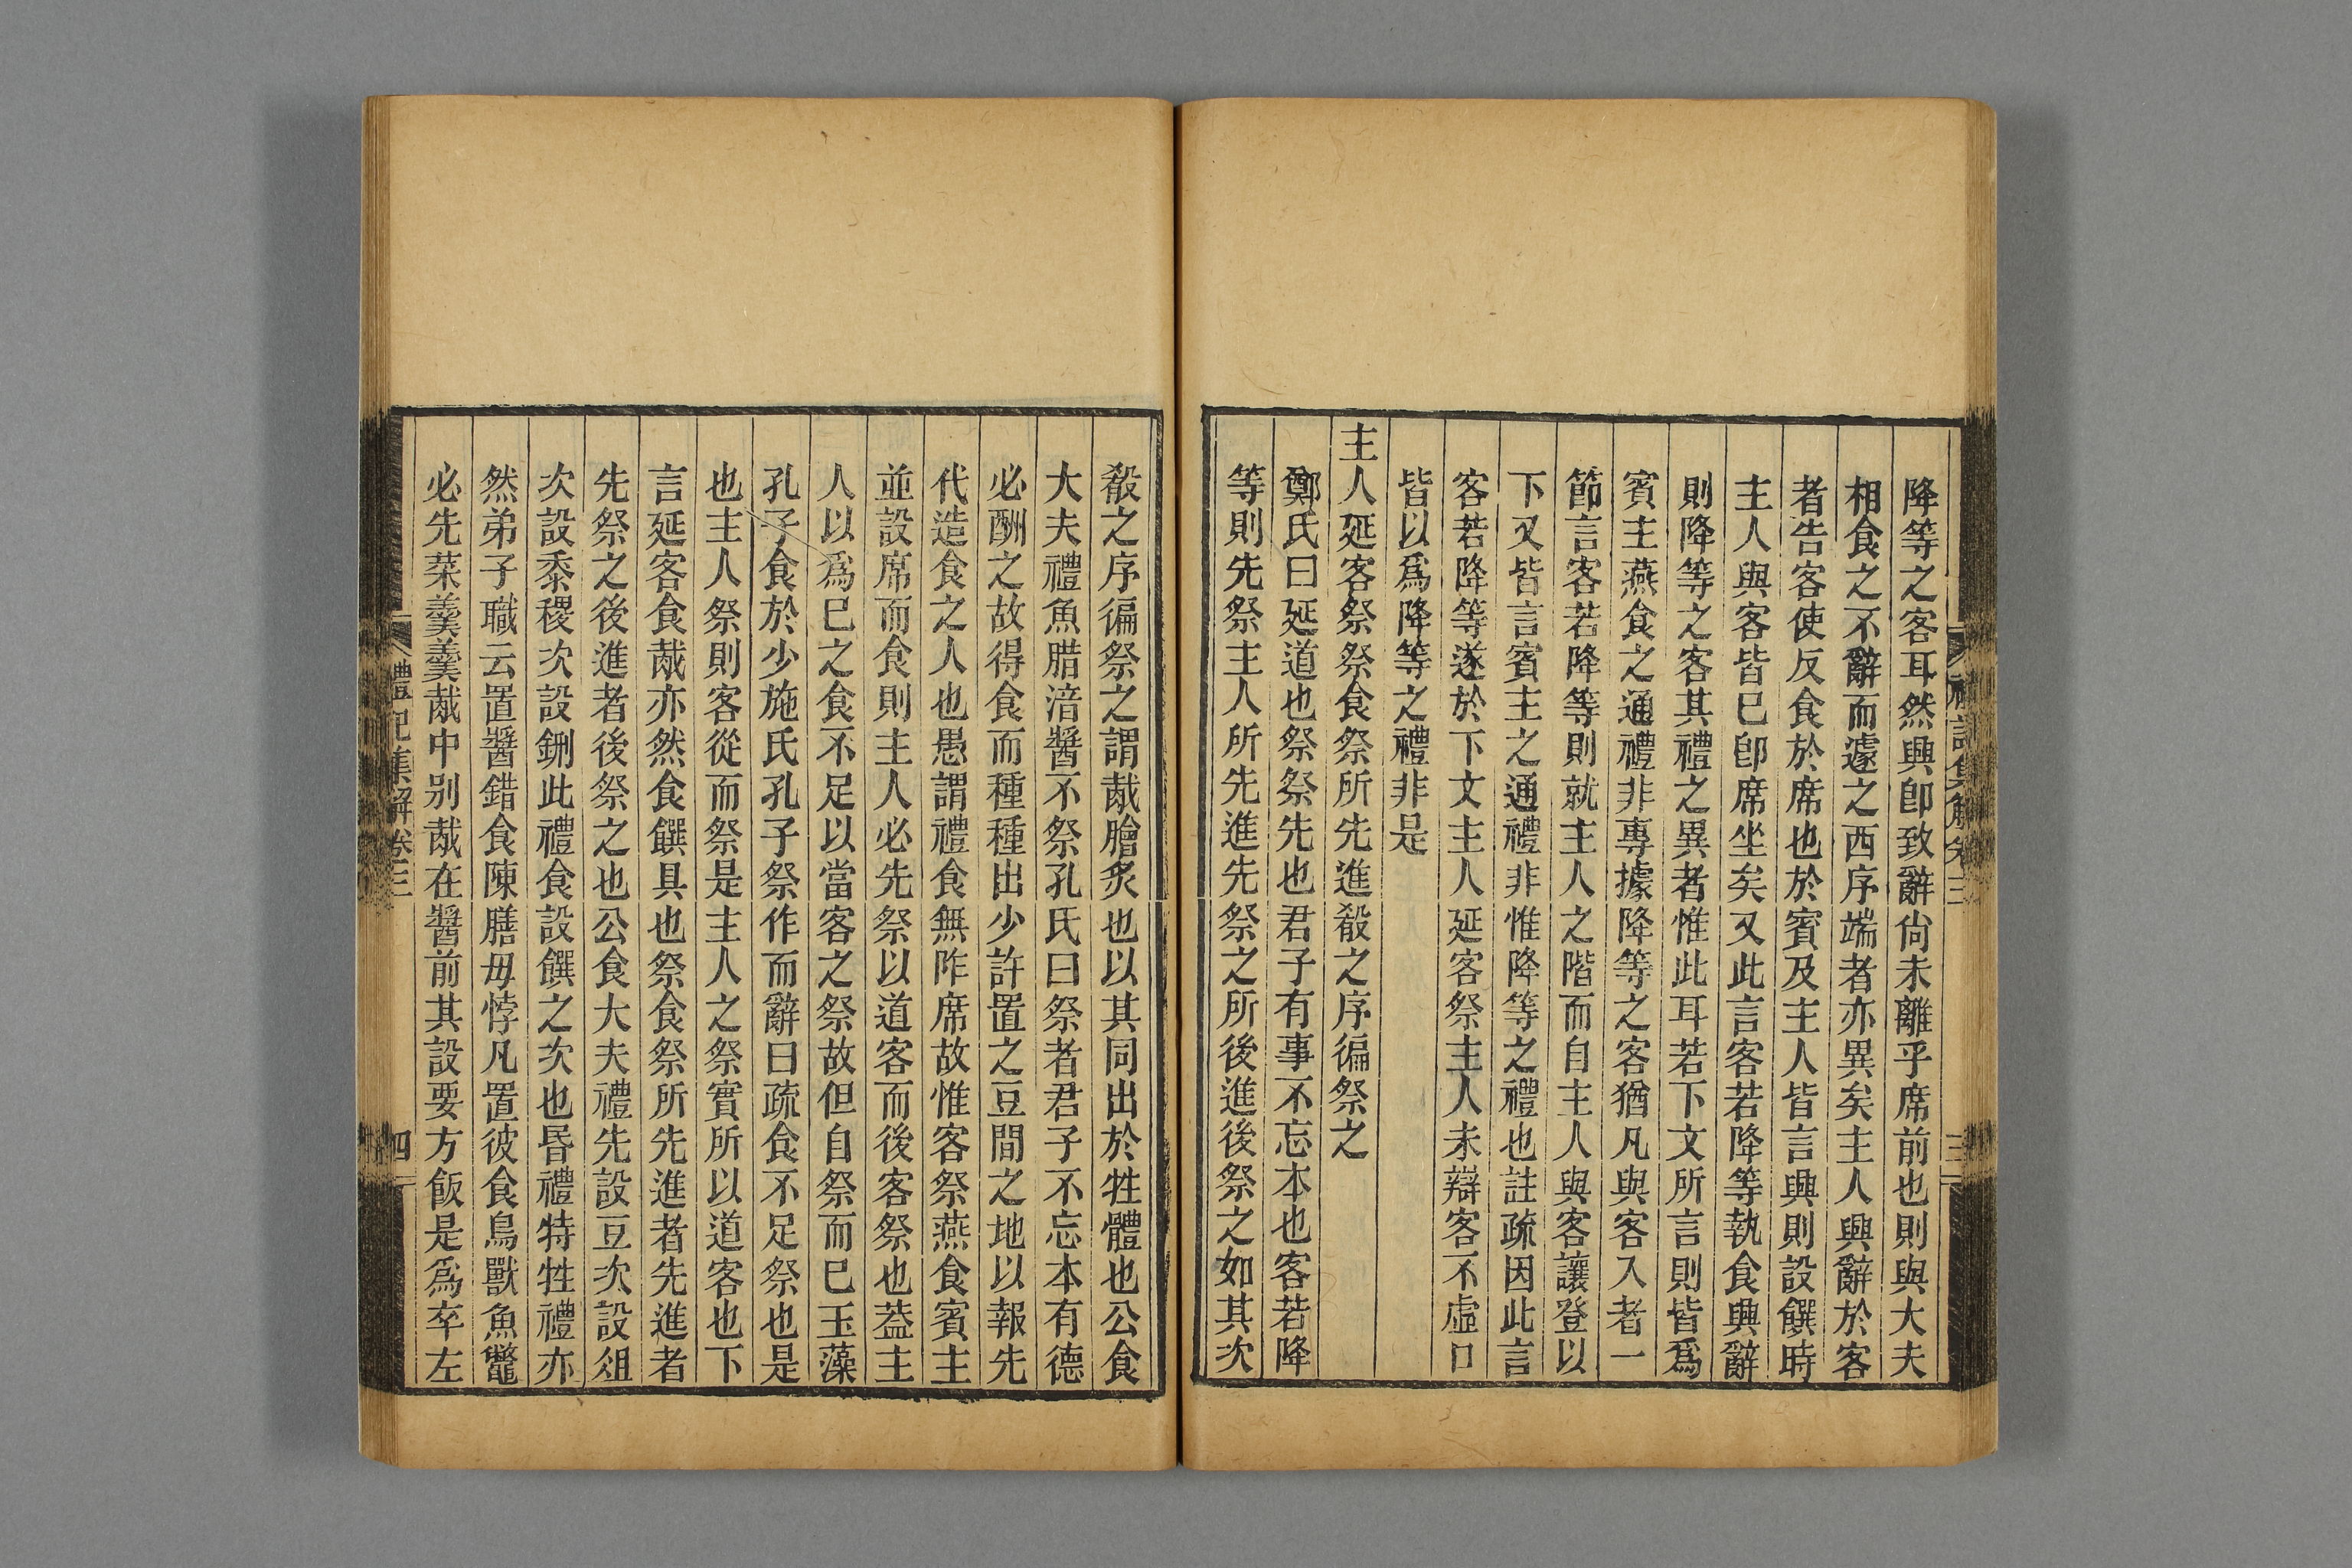 降等之客耳然興卽致辭尙未離乎席前也則與大夫
相食之不辭而遽之西序端者亦異矣主人興辭於客
者告客使反食於席也於賓及主人皆言興則設饌時
主人與客皆已卽席坐矣又此言客若降等執食興辭
則降等之客其禮之異者惟此耳若下文所言則皆爲
賓主燕食之通禮非專據降等之客猶凡與客入者一
節言客若降等則就主人之階而自主人與客讓登以
下又皆言賓主之通禮非惟降等之禮也註疏因此言
客若降等遂於下文主人延客祭主人未辯客不虛口
皆以爲降等之禮非是
主人延客祭祭食祭所先進殽之序徧祭之
鄭氏曰延道也祭祭先也君子有事不忘本也客若降
等則先祭主人所先進先祭之所後進後祭之如其次
禮記集解卷三
三
殽之序徧祭之謂胾膾炙也以其同出於牲體也公食
大夫禮魚腊湆醬不祭孔氏曰祭者君子不忘本有德
必酬之故得食而種種出少許置之豆間之地以報先
代造食之人也愚謂禮食無阼席故惟客祭燕食賓主
並設席而食則主人必先祭以道客而後客祭也蓋主
人以爲已之食不足以當客之祭故但自祭而已玉藻
孔子食於少施氏孔子祭作而辭曰疏食不足祭也是
也主人祭則客從而祭是主人之祭實所以道客也下
言延客食胾亦然食饌具也祭食祭所先進者先進者
先祭之後進者後祭之也公食大夫禮先設豆次設俎
次設黍稷次設鉶此禮食設饌之次也昏禮特牲禮亦
然弟子職云置醬錯食陳膳毋悖凡置彼食鳥獸魚鼈
必先菜羹羹胾中別胾在醬前其設要方飯是爲卒左
禮記集解卷三
四